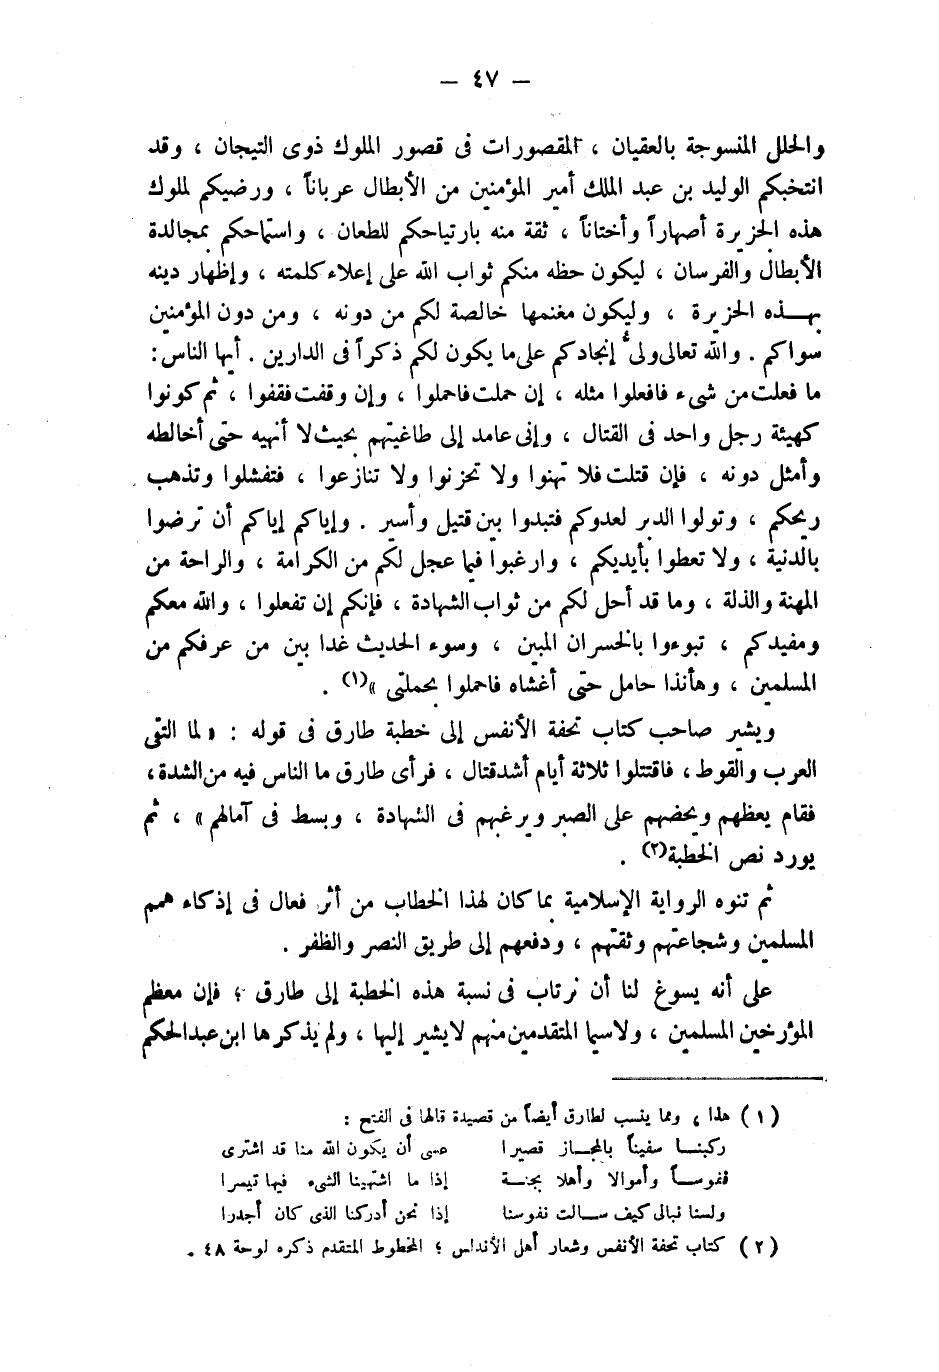 — ٤٧ —
والحلل المنسوجة بالعقيان ، المقصورات فى قصور الملوك ذوى التيجان ، وقد
انتخبكم الوليد بن عبد الملك أمير المؤمنين من الأبطال عرباناً ، ورضيكم لملوك
هذه الجزيرة أصهاراً وأختاناً ، ثقة منه بارتياحكم للطعان ، واستماحكم بمجالدة
الأبطال والفرسان ، ليكون حظه منكم ثواب الله على إعلاء كلمته ، وإظهار دينه
بهـذه الجزيرة ، وليكون مغنمها خالصة لكم من دونه ، ومن دون المؤمنين
سواكم . والله تعالى ولى إنجادكم على ما يكون لكم ذكراً فى الدارين . أيها الناس :
ما فعلت من شىء فافعلوا مثله ، إن حملت فاحملوا ، وإن وقفت فقفوا ، ثم كونوا
كهيئة رجل واحد فى القتال ، وإنى عامد إلى طاغيتهم بحيث لا أنهيه حتى أخالطه
وأمثل دونه ، فإن قتلت فلا تهنوا ولا تحزنوا ولا تنازعوا ، فتفشلوا وتذهب
ريحكم ، وتولوا الدبر لعدوكم فتبدوا بين قتيل وأسير . وإياكم إياكم أن ترضوا
بالدنية ، ولا تعطوا بأيديكم ، وارغبوا فيما عجل لكم من الكرامة ، والراحة من
المهنة والذلة ، وما قد أحل لكم من ثواب الشهادة ، فإنكم إن تفعلوا ، والله معكم
ومفيدكم ، تبوءوا بالخسران المبين ، وسوء الحديث غدا بين من عرفكم من
المسلمين ، وهأنذا حامل حتى أغشاه فاحملوا بحملتى »(١) .
ويشير صاحب كتاب تحفة الأنفس إلى خطبة طارق فى قوله : « لما التقى
العرب والقوط ، فاقتتلوا ثلاثة أيام أشد قتال ، فرأى طارق ما الناس فيه من الشدة ،
فقام يعظهم ويحضهم على الصبر ويرغبهم فى الشهادة ، وبسط فى آمالهم » ، ثم
يورد نص الخطبة(٢) .
ثم تنوه الرواية الإسلامية بما كان لهذا الخطاب من أثر فعال فى إذكاء همم
المسلمين وشجاعتهم وثقتهم ، ودفعهم إلى طريق النصر والظفر .
على أنه يسوغ لنا أن نرتاب فى نسبة هذه الخطبة إلى طارق ؛ فإن معظم
المؤرخين المسلمين ، ولاسيما المتقدمين منهم لا يشير إليها ، ولم يذكرها ابن عبدالحكم
(١) هذا ، ومما ينسب لطارق أيضاً من قصيدة قالها فى الفتح :
ركبنـا سفيناً بالمجـاز مقيرا عسى أن يكون الله منا قد اشترى
نفوسـاً وأموالا وأهلا بجنـة إذا ما اشتهينا الشىء فيها تيسرا
ولسنا نبالى كيف سـالت نفوسنا إذا نحن أدركنا الذى كان أجدرا
(٢) كتاب تحفة الأنفس وشعار أهل الأندلس ؛ المخطوط المتقدم ذكره لوحة ٤٨ .